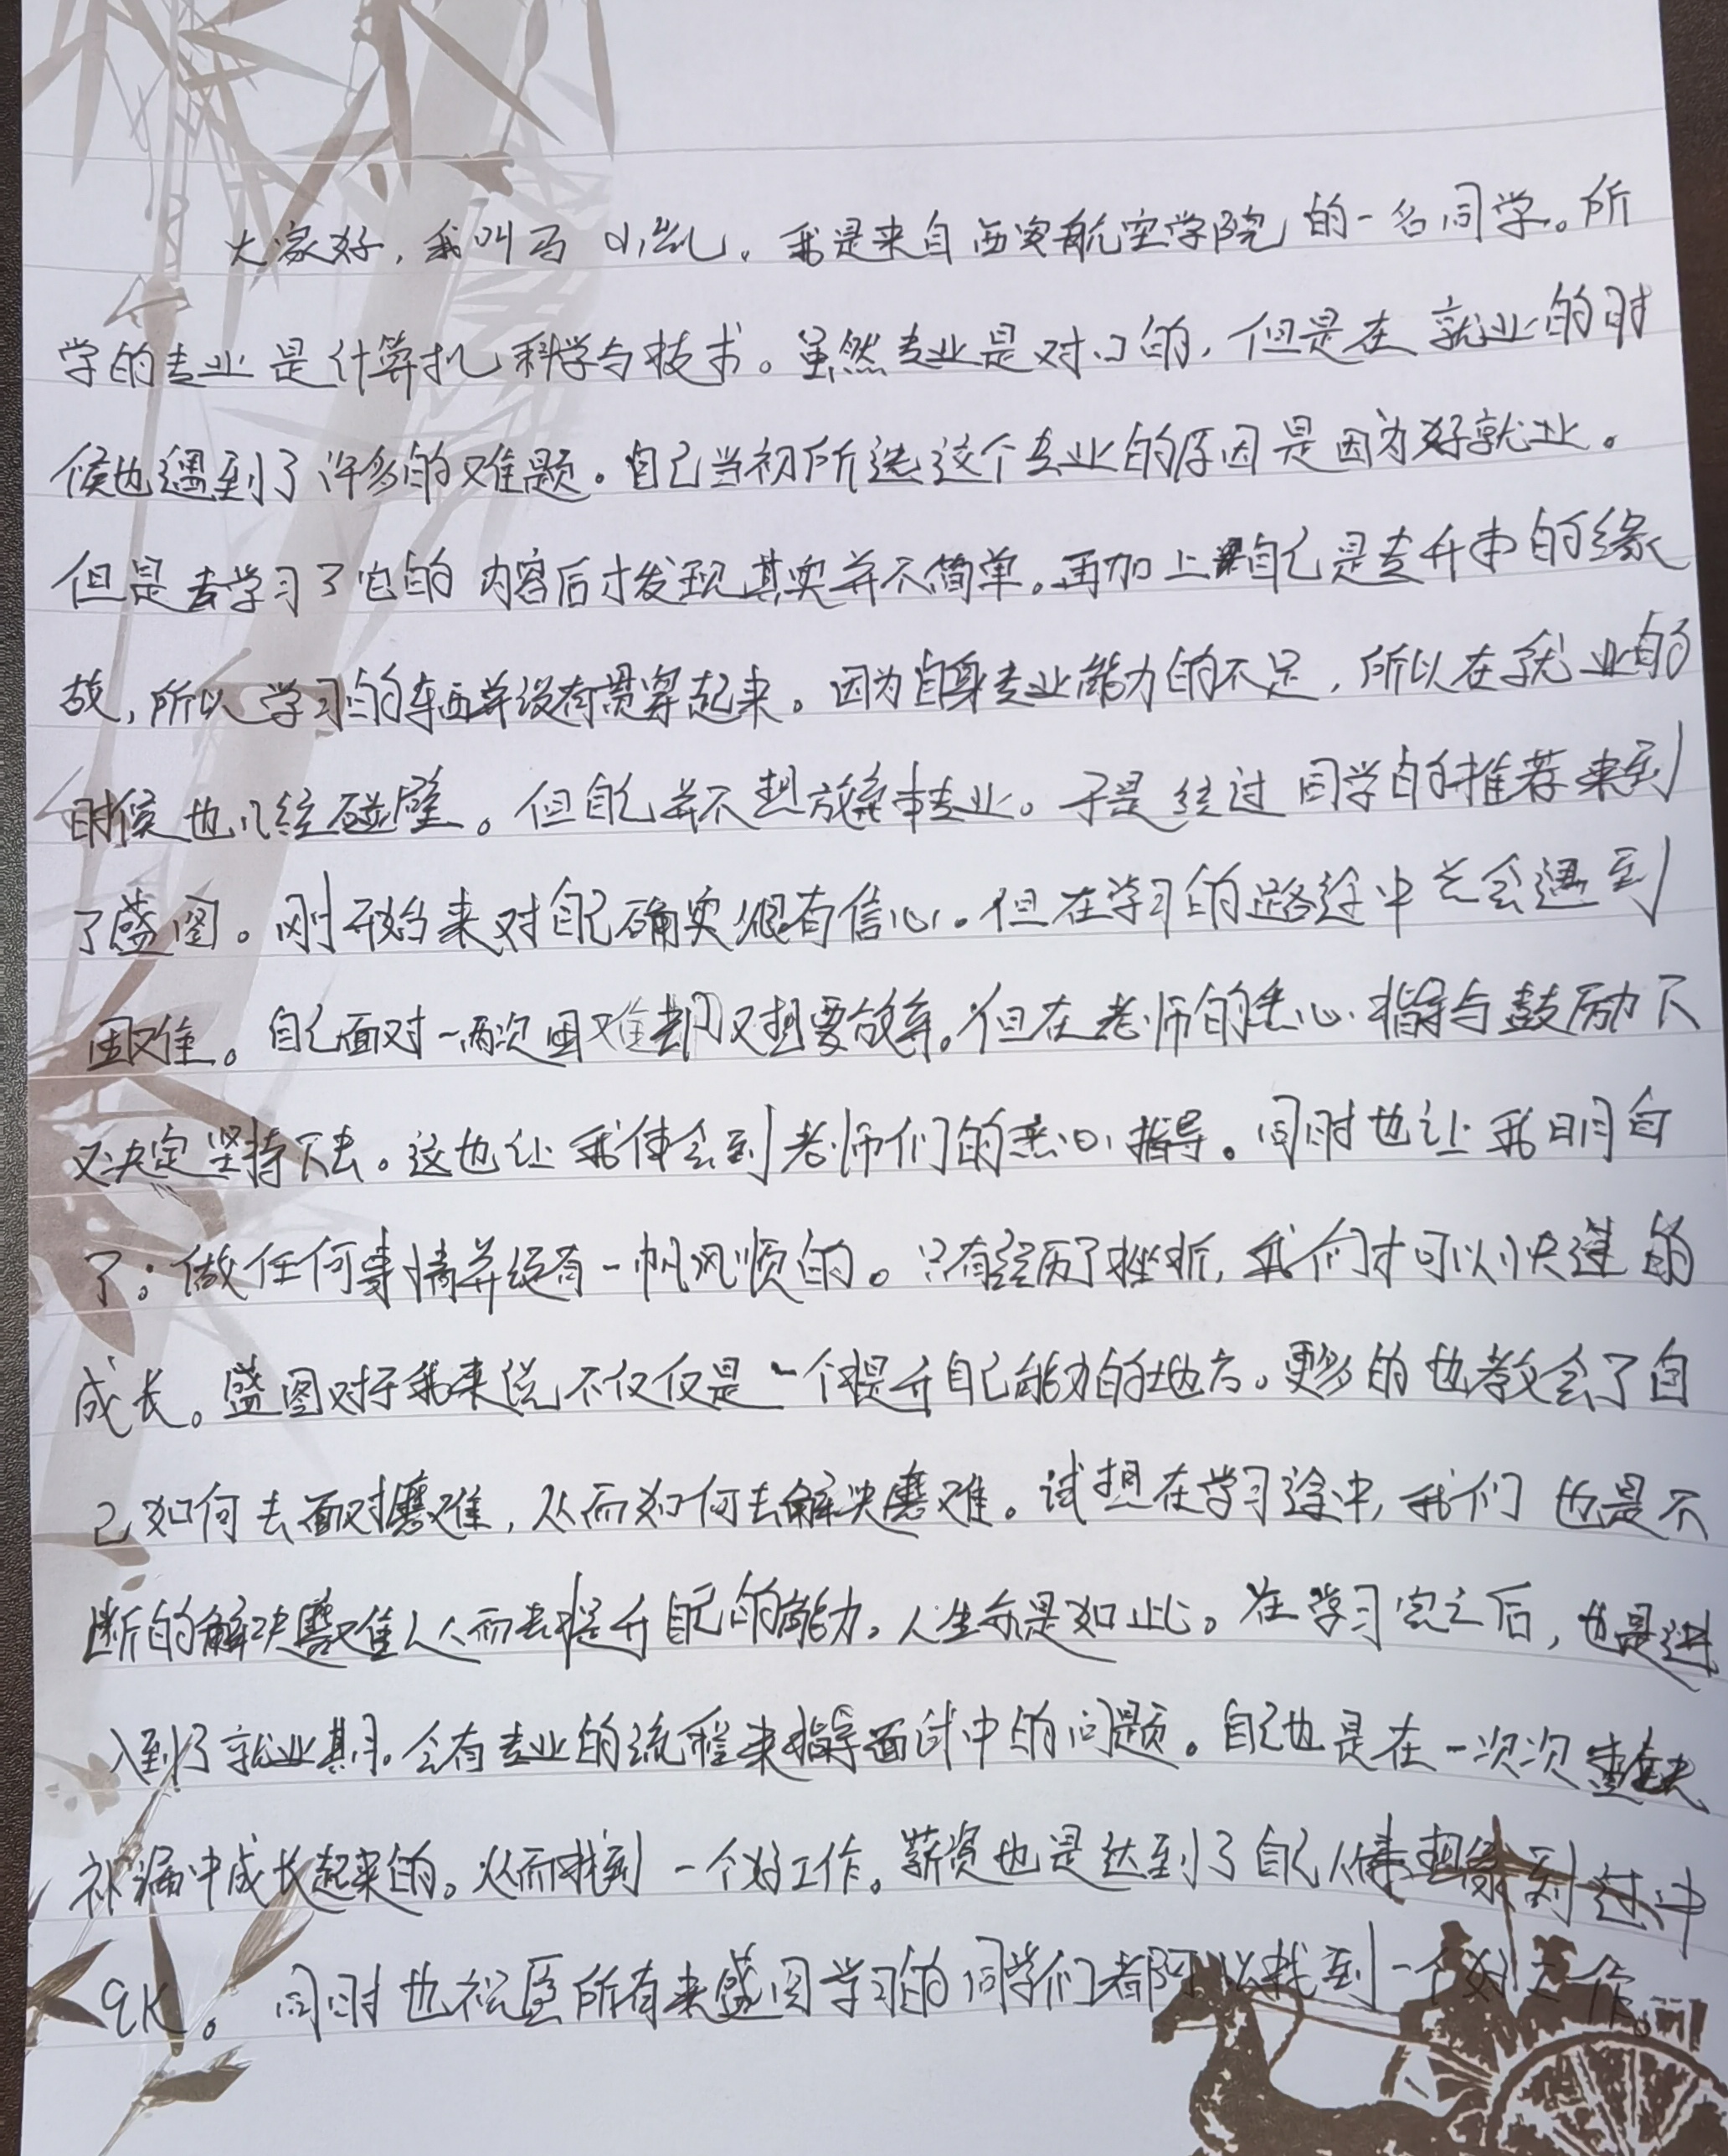 大家好，我叫马小凯。我是来自西安航空学院的一名同学。所
学的专业是计算机科学与技术。虽然专业是对口的，但是在就业的时
候也遇到了许多的难题。自己当初所选这个专业的原因是因为好就业。
但是去学习了它的内容后才发现其实并不简单。再加上自己是专升本的缘
故，所以学习的东西并没有贯穿起来。因为自身专业能力的不足，所以在就业的
时候也几经碰壁。但自己并不想放弃本专业。于是经过同学的推荐来到
了盛图。刚开始来对自己确实很有信心。但在学习的路途中总会遇到
困难。自己面对一两次困难却又想要放弃。但在老师的悉心指导与鼓励下
又决定坚持下去。这也让我体会到老师们的悉心指导。同时也让我明白
了：做任何事情并没有一帆风顺的。只有经历了挫折，我们才可以快速的
成长。盛图对于我来说不仅仅是一个提升自己能力的地方。更多的也教会了自
己如何去面对磨难，从而如何去解决磨难。试想在学习途中，我们也是不
断的解决磨难从而去提升自己的能力。人生亦是如此。在学习完之后，也是进
入到了就业期。会有专业的流程来指导面试中的问题。自己也是在一次次查缺
补漏中成长起来的。从而找到一个好工作。薪资也是达到了自己理想到过中
9K。同时也祝愿所有来盛图学习的同学们都可以找到一个好工作。